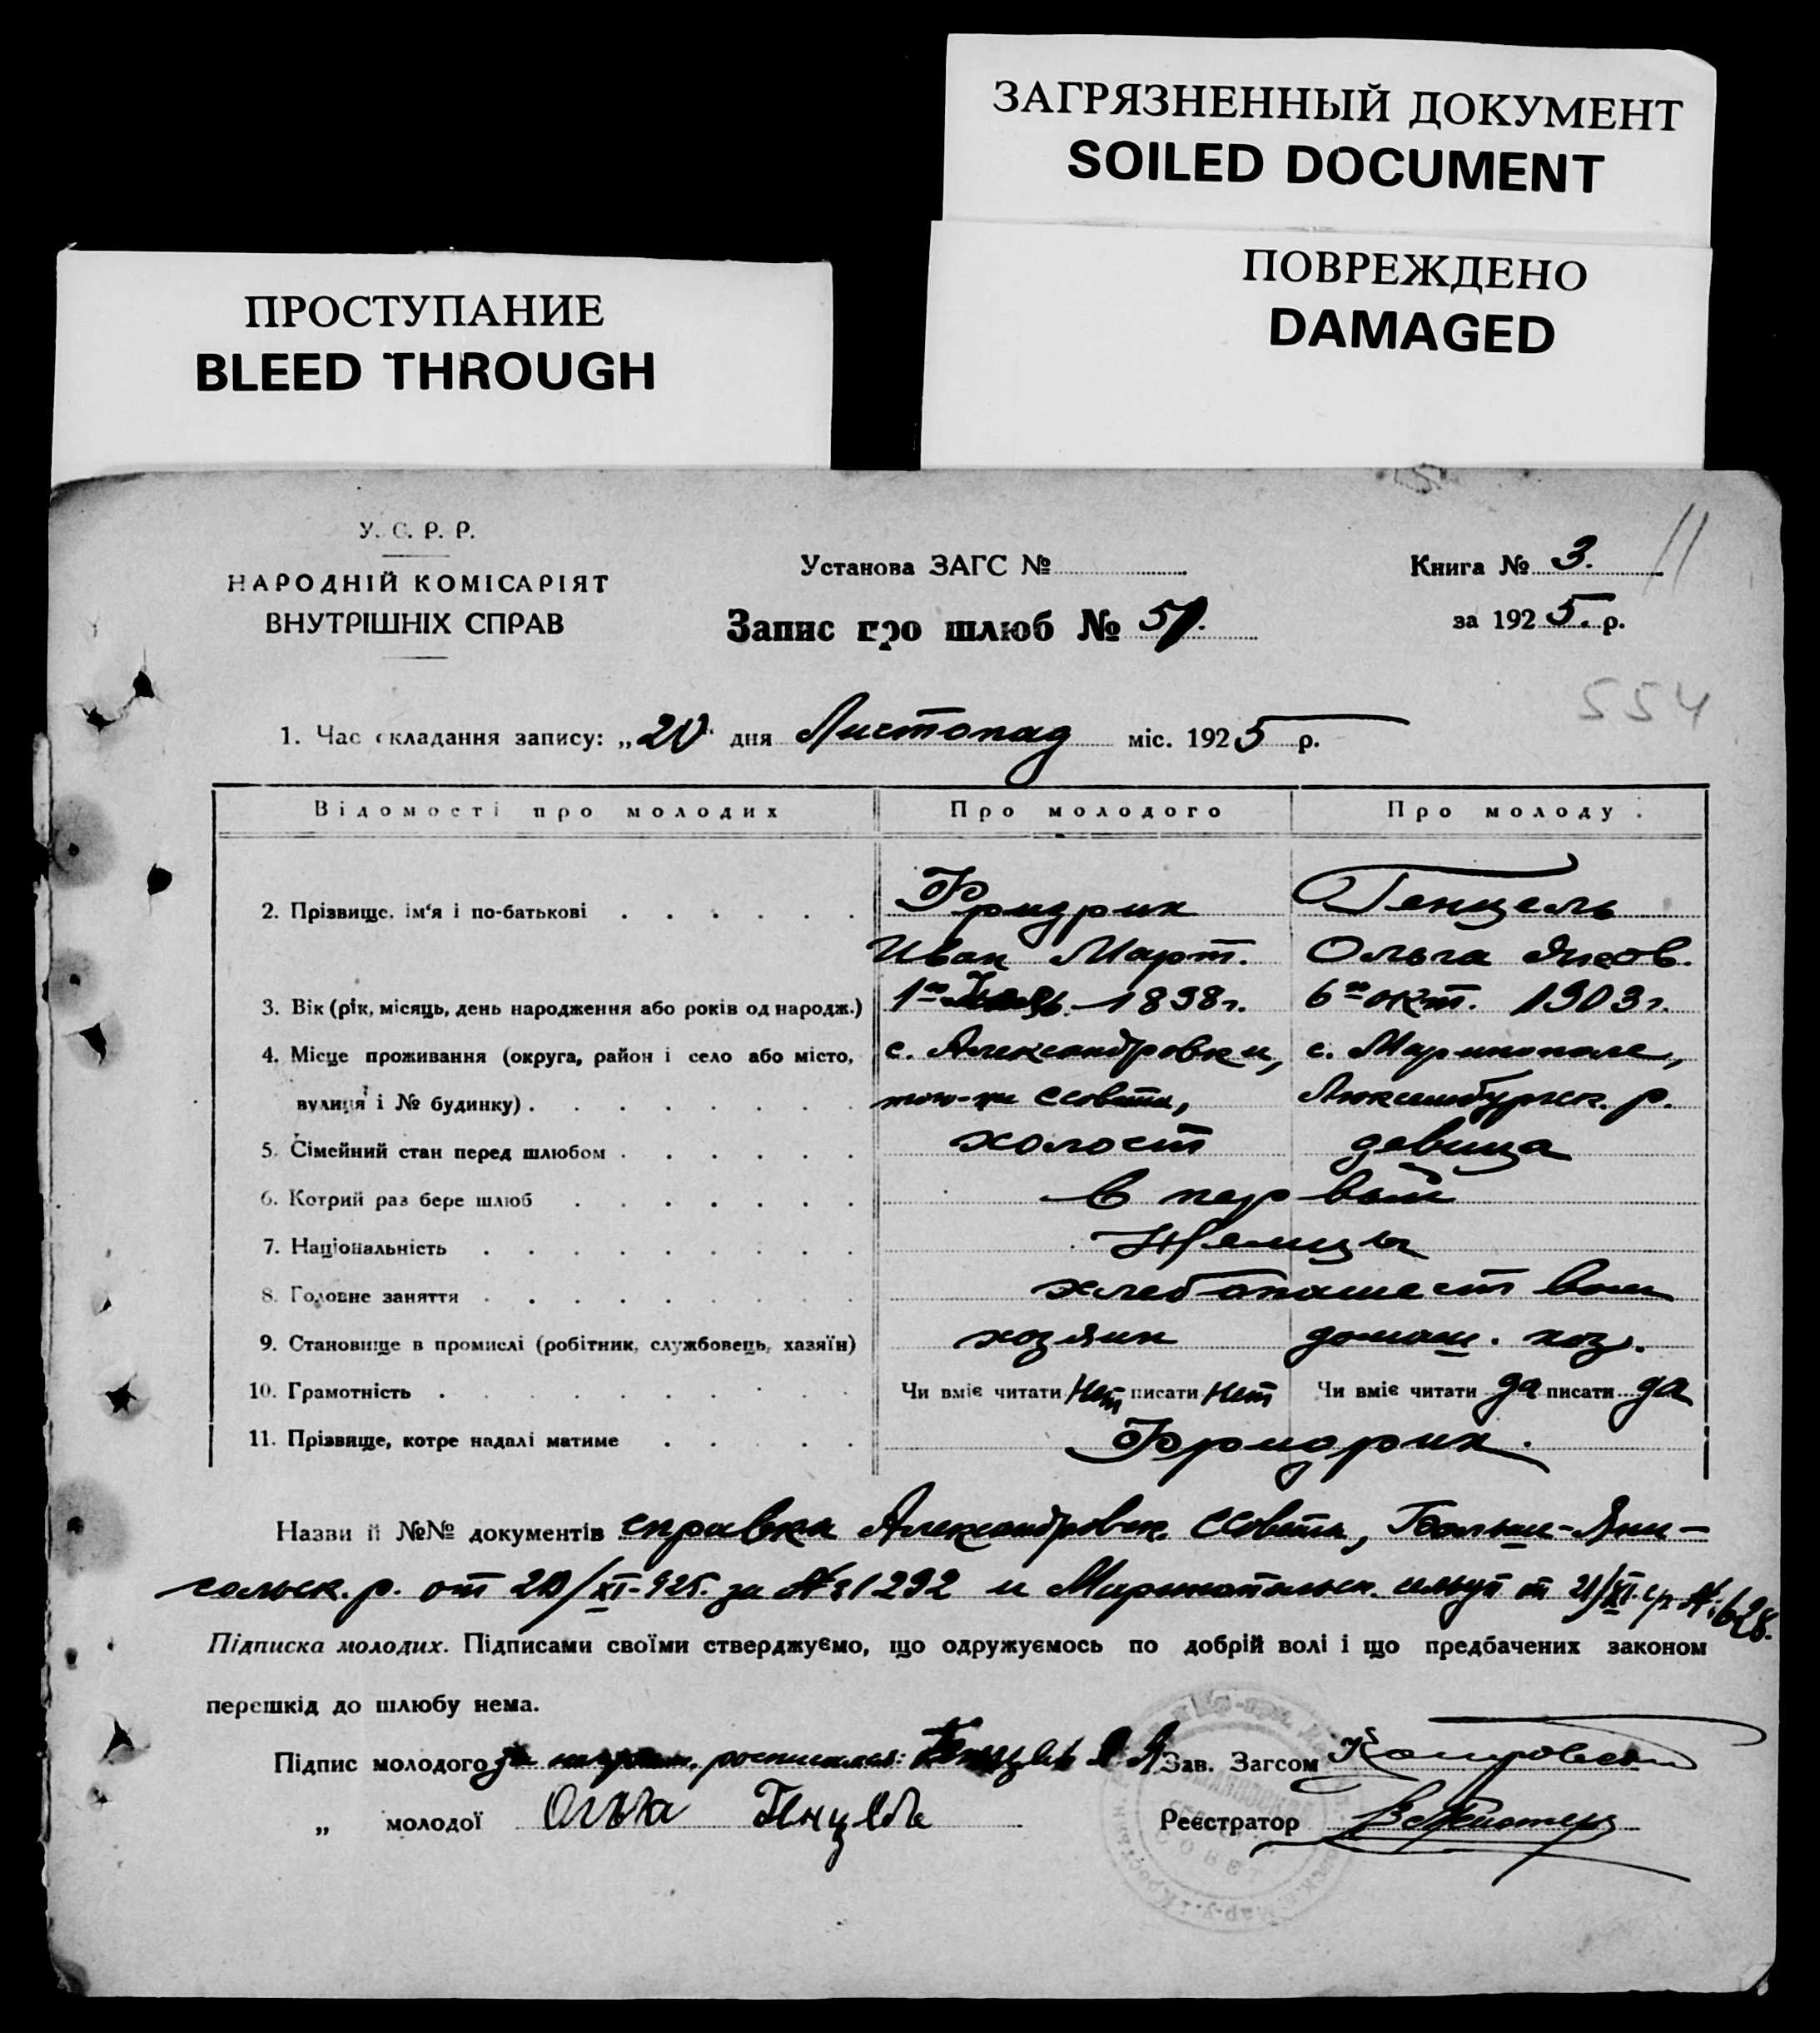 ЗАГРЯЗНЕННЫЙ ДОКУМЕНТ
SOILED DOCUMENT
ПОВРЕЖДЕНО
DAMAGED
ПРОСТУПАНИЕ
BLEED THROUGH
У. С. Р. Р.
НАРОДНІЙ КОМІСАРІЯТ
ВНУТРІШНІХ СПРАВ
Установа ЗАГС №
Запис про шлюб № 51.
Книга № 3.
за 1925. р.
11
554
1. Час складання запису: „20" дня Листопад міс. 1925 р.
Відомості про молодих Про молодого Про молоду
2. Прізвище, ім'я і по-батькові Фридрих Генцель
Иван Март. Ольга Яков.
3. Вік (рік, місяць, день народження або років од народж.) 1го 1898 г. 6го окт. 1903 г.
4. Місце проживання (округа, район і село або місто, с. Александровки, с. Маринополе,
вулиця і № будинку) того-же ссовета, Люксембургск. р.
5. Сімейний стан перед шлюбом холост девица
6. Котрий раз бере шлюб в первый
7. Національність Немцы
8. Головне заняття хлебопашеством
9. Становище в промислі (робітник, службовець, хазяїн) хозяин домаш. хоз.
10. Грамотність Чи вміє читати Нет писати Нет Чи вміє читати да писати да
11. Прізвище, котре надалі матиме Фридрих.
Назви й №№ документів справки Александровск. ссовета, Больше-Яни-
сольск. р. от 20/XI-925. за № 1292 и Маринопольск. от 21/XI. с/г № 628.
Підписка молодих. Підписами своїми стверджуємо, що одружуємось по добрій волі і що предбачених законом
перешкід до шлюбу нема.
Підпис молодого за неграм. росписался: Генцель Я. Зав. Загсом
„ молодої Ольга Генцель Реєстратор